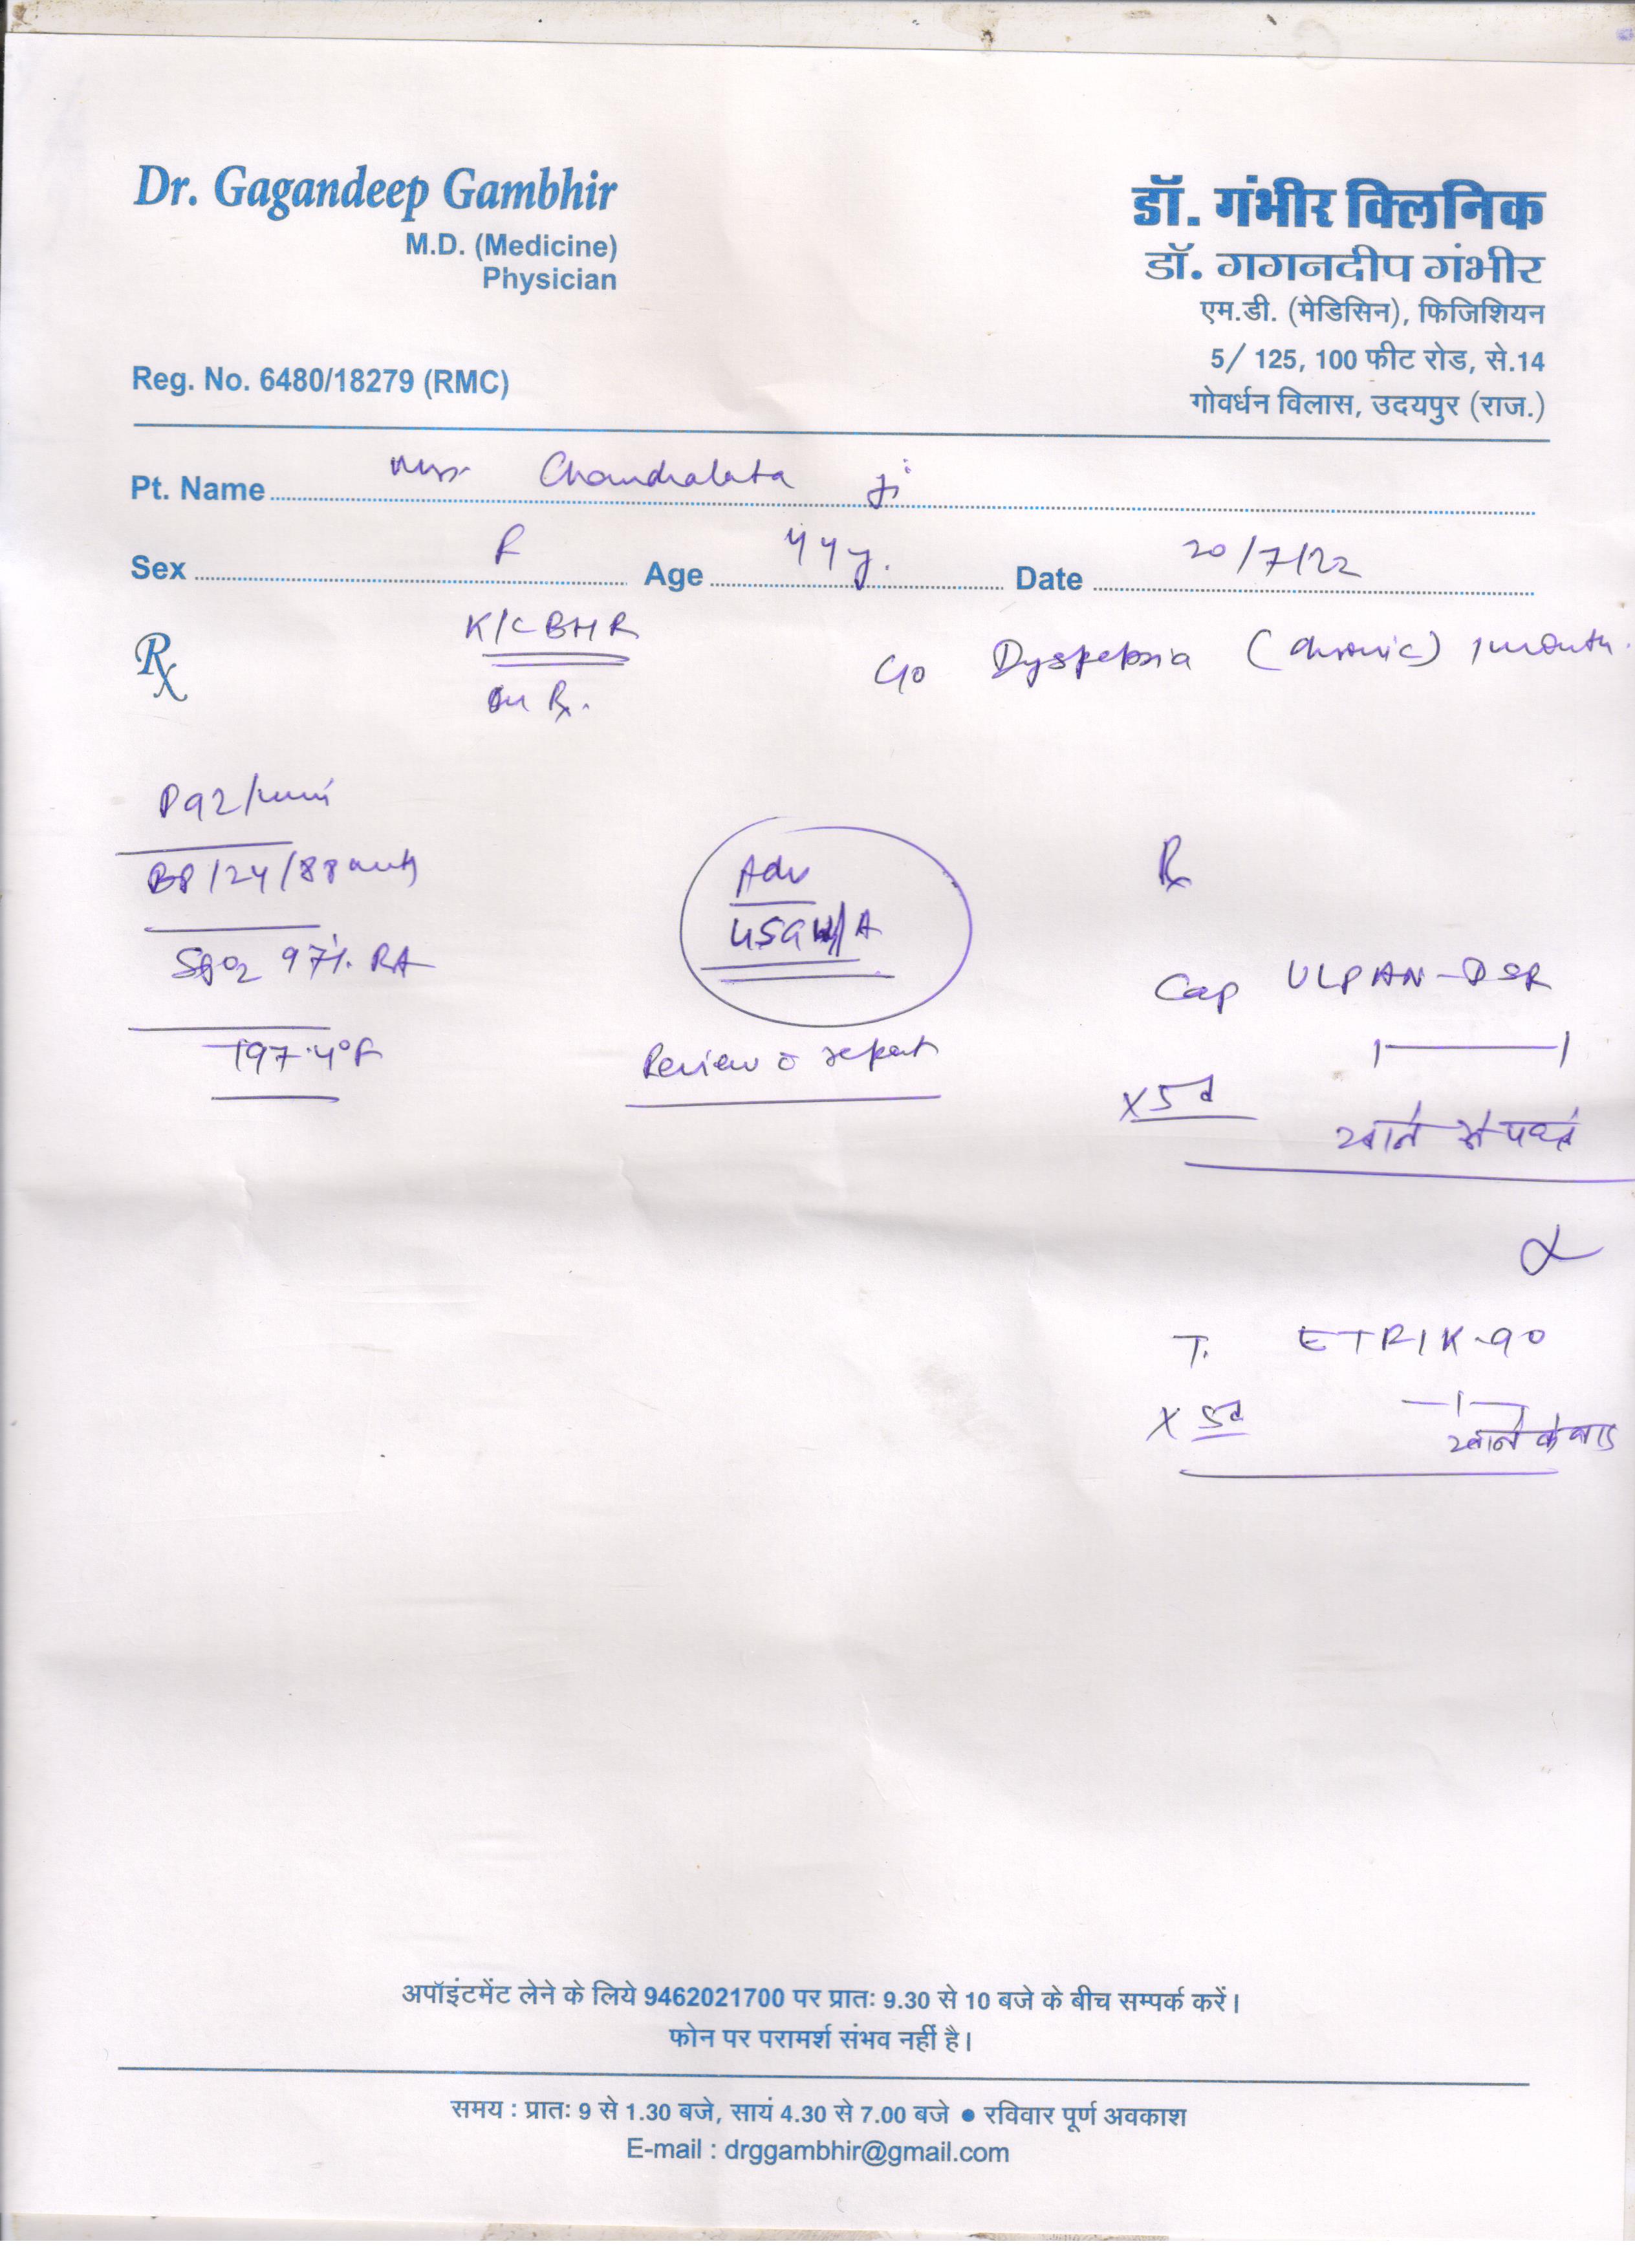 Dr. Gagandeep Gambhir
M.D. (Medicine)
Physician
Reg. No. 6480/18279 (RMC)
डॉ. गंभीर क्लिनिक
डॉ. गगनदीप गंभीर
एम.डी. (मेडिसिन), फिजिशियन
5/ 125, 100 फीट रोड, से.14
गोवर्धन विलास, उदयपुर (राज.)
Pt. Name Mrs Chandralata ji
Sex F Age 44y. Date 20/7/22
Rx K/C BHR C/o Dyspepsia (chronic) 1 month.
on Rx.
P 92/min
BP 124/88
SpO2 97% RA
T 97.4°F
Adv
USG W/A
Review c̄ report
Rx
Cap ULPAN-DSR
1—1
x 5d खाने से पहले
T. ETRIK-90
x 5d खाने के बाद
अपॉइंटमेंट लेने के लिये 9462021700 पर प्रातः 9.30 से 10 बजे के बीच सम्पर्क करें।
फोन पर परामर्श संभव नहीं है।
समय : प्रातः 9 से 1.30 बजे, सायं 4.30 से 7.00 बजे ● रविवार पूर्ण अवकाश
E-mail : drggambhir@gmail.com